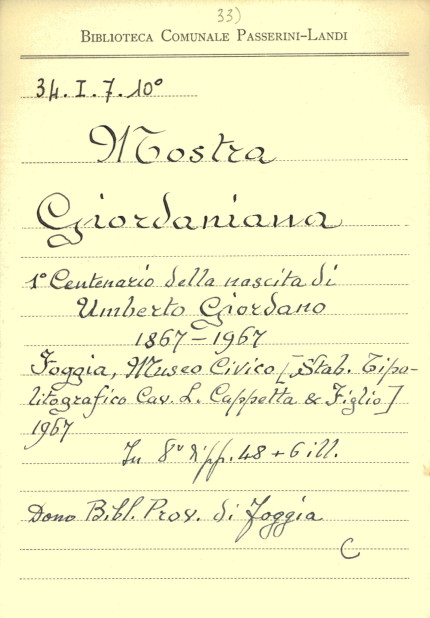 33)
BIBLIOTECA COMUNALE PASSERINI-LANDI
34. I. 7. 10°
Mostra
Giordaniana
1° Centenario della nascita di
Umberto Giordano
1867-1967
Foggia, Museo Civico [Stab. Tipo-
litografico Cav. L. Cappetta & Figlio]
1967
In 8° di pp. 48 + 6 ill.
Dono Bibl. Prov. di Foggia
C